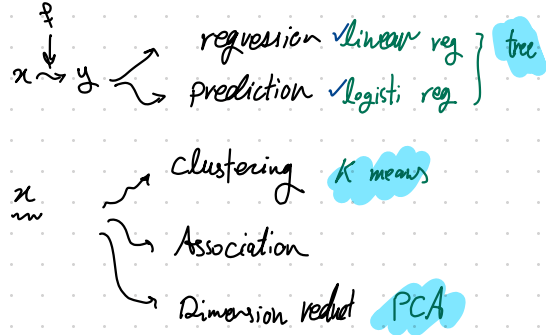 f
x y
regression ✓linear reg
prediction ✓logisti reg
tree
x
clustering K means
Association
Dimension reduct PCA